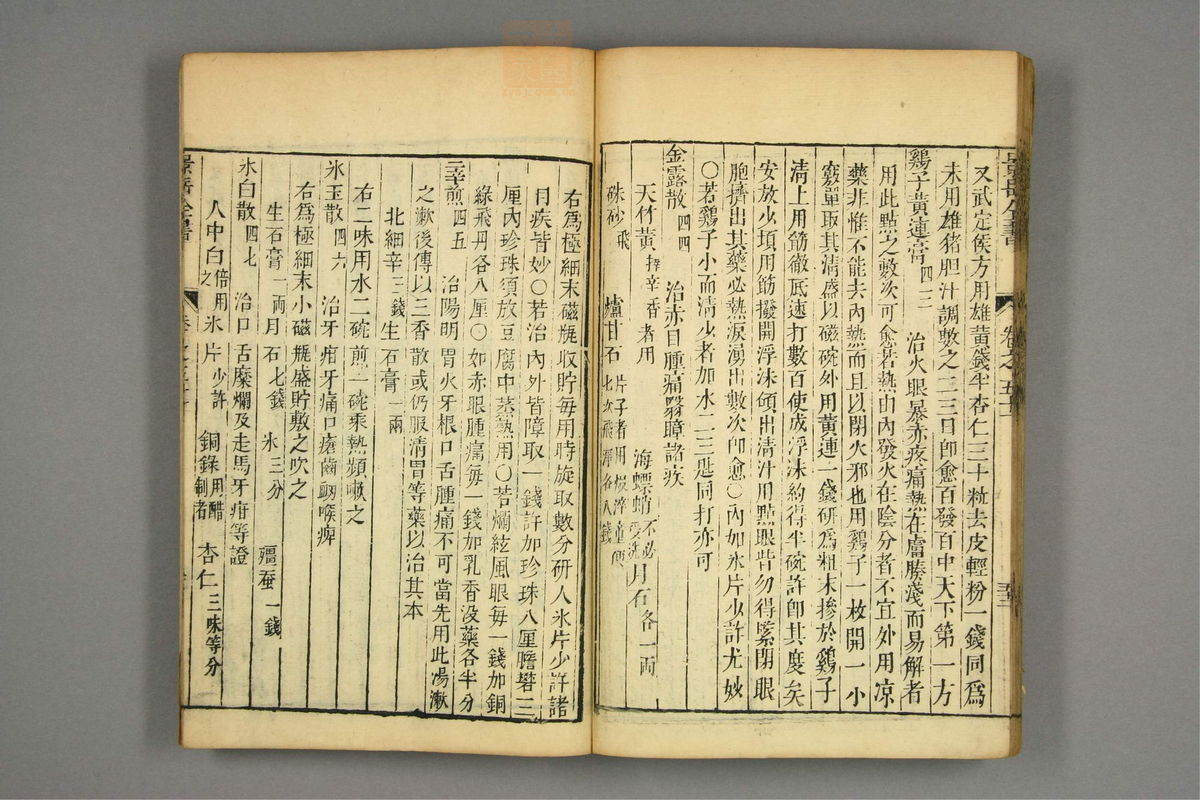 又武定侯方用雄黃錢半杏仁三十粒去皮輕粉一錢同爲
末用雄猪胆汁調敷之二三日即愈百發百中天下第一方
鷄子黃連膏四三 治火眼暴赤疼痛熱在膚腠淺而易解者
用此點之數次可愈若熱由內發火在陰分者不宜外用凉
藥非惟不能去內熱而且以閉火邪也用鷄子一枚開一小
竅單取其清盛以磁碗外用黃連一錢研爲粗末摻於鷄子
清上用筯徹底速打數百使成浮沫約得半碗許即其度矣
安放少頃用筯撥開浮沫傾出清汁用點眼眥勿得緊閉眼
胞擠出其藥必熱淚湧出數次即愈○內加氷片少許尤妙
○若鷄子小而清少者加水二三匙同打亦可
金露散四四 治赤目腫痛翳障諸疾
天竹黃擇辛香者用 海螵蛸不必浸洗 月石各一兩
硃砂飛 爐甘石片子者用煆淬童便七次飛淨各八錢
右爲極細末磁瓶收貯每用時旋取數分研入氷片少許諸
目疾皆妙○若治內外皆障取一錢許加珍珠八厘膽礬三
厘內珍珠須放豆腐中蒸熟用○若爛絃風眼每一錢加銅
綠飛丹各八厘○如赤眼腫痛每一錢加乳香没藥各半分
二辛煎四五 治陽明胃火牙根口舌腫痛不可當先用此湯漱
之漱後傳以三香散或仍服清胃等藥以治其本
北細辛三錢 生石膏一兩
右二味用水二碗煎一碗乘熱頻嗽之
氷玉散四六 治牙疳牙痛口瘡齒衂喉痺
生石膏一兩 月石七錢 氷三分 殭蚕一錢
右爲極細末小磁瓶盛貯敷之吹之
氷白散四七 治口舌糜爛及走馬牙疳等證
人中白倍用之 氷片少許 銅綠用醋制者 杏仁二味等分
景岳全書 卷之五十一